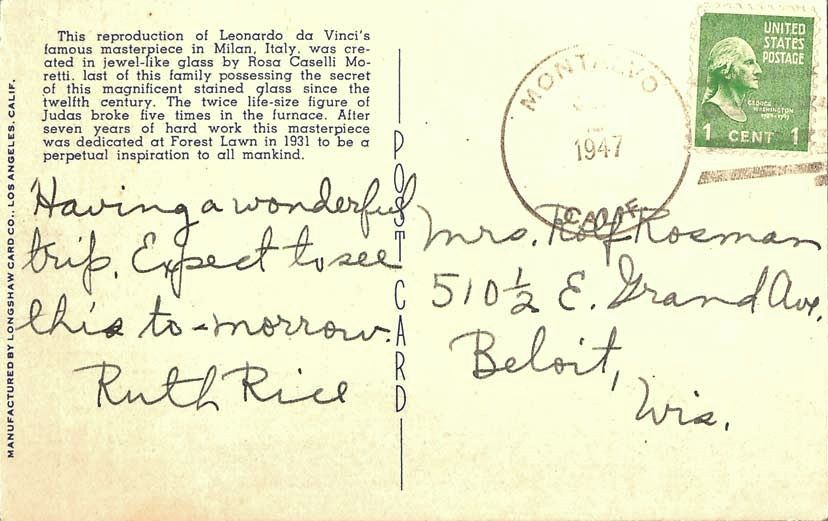 This reproduction of Leonardo da Vinci's
famous masterpiece in Milan, Italy, was cre-
ated in jewel-like glass by Rosa Caselli Mo-
retti, last of this family possessing the secret
of this magnificent stained glass since the
twelfth century. The twice life-size figure of
Judas broke five times in the furnace. After
seven years of hard work this masterpiece
was dedicated at Forest Lawn in 1931 to be a
perpetual inspiration to all mankind.
MANUFACTURED BY LONGSHAW CARD CO., LOS ANGELES, CALIF.
Having a wonderful
trip. Expect to see
this to-morrow.
Ruth Rice
POST CARD
MONTALVO
1947
CALIF.
UNITED
STATES
POSTAGE
GEORGE
WASHINGTON
1789-1797
1 CENT 1
Mrs. Rolf Rosman
510 ½ E. Grand Ave.
Beloit,
Wis.